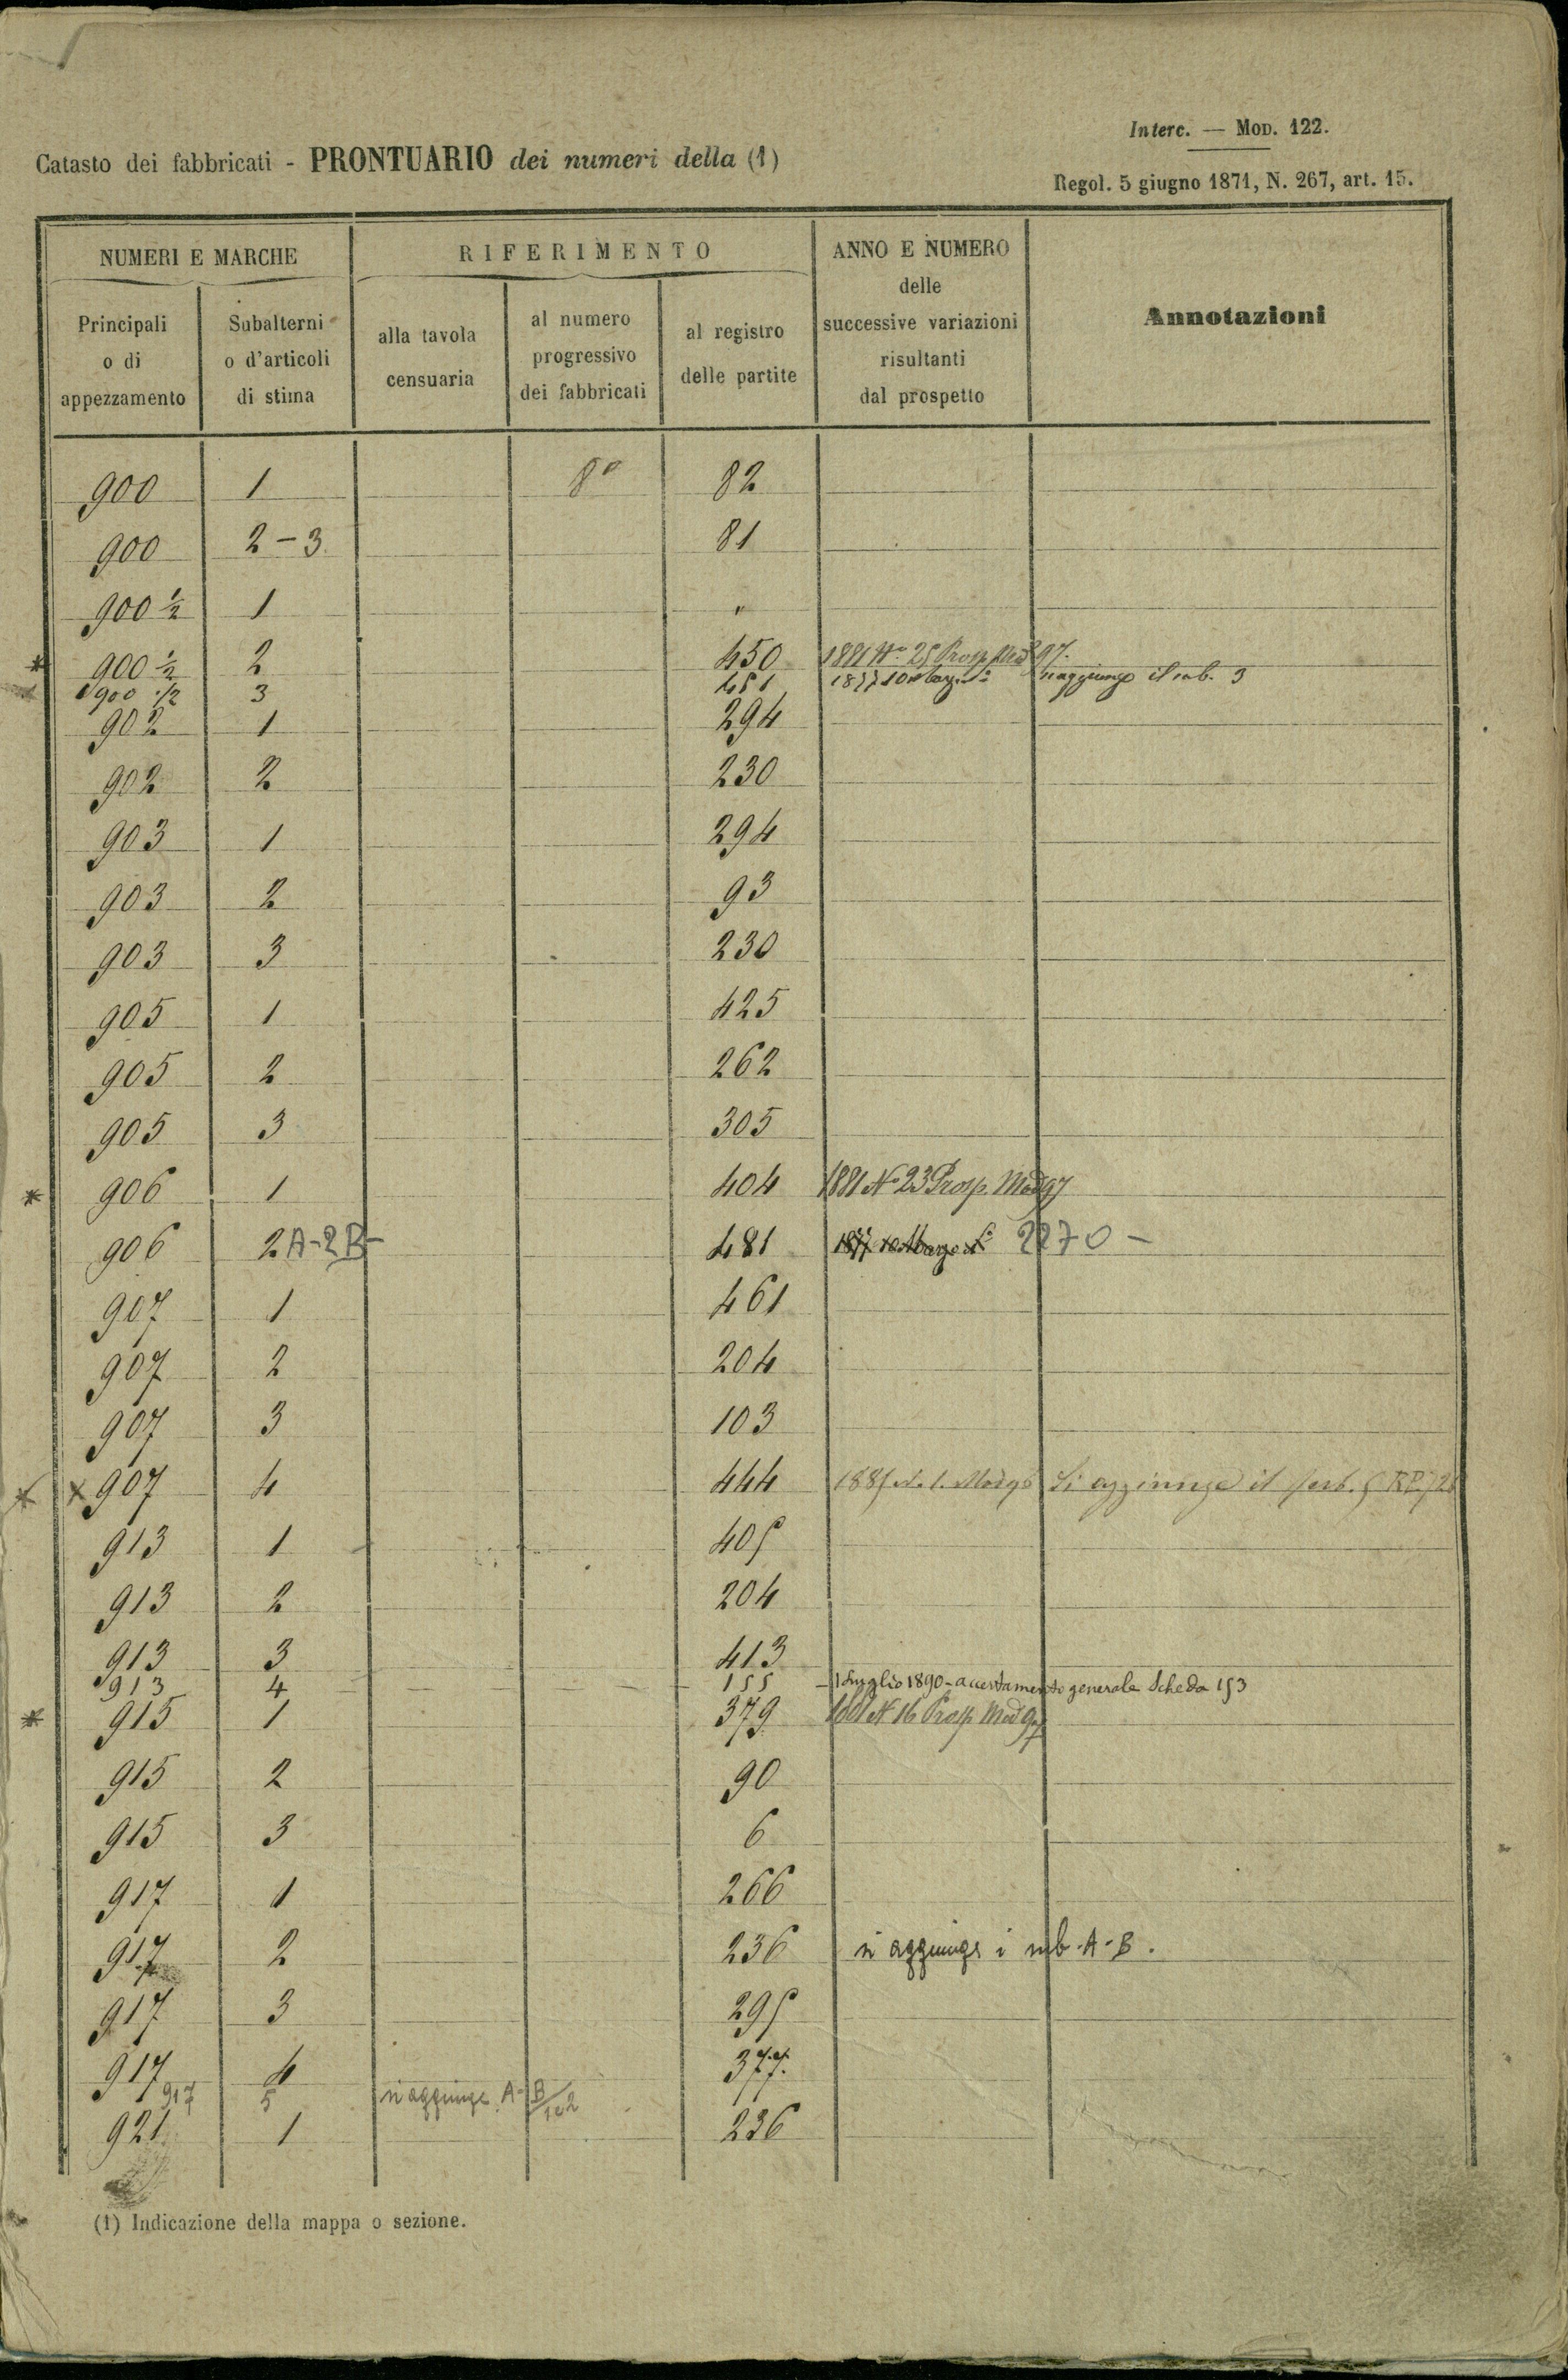 Interc. — Mod. 122.
Catasto dei fabbricati - PRONTUARIO dei numeri della (1)
Regol. 5 giugno 1871, N. 267, art. 15.
NUMERI E MARCHE
RIFERIMENTO
ANNO E NUMERO delle successive variazioni risultanti dal prospetto
Annotazioni
Principali o di appezzamento
Subalterni o d'articoli di stima
alla tavola censuaria
al numero progressivo dei fabbricati
al registro delle partite
900 1 82
900 2-3 81
900 ½ 1 "
* 900 ½ 2 450 1881 No 25 Prosp Mod 97.
900 1/2 3 451 1877 si aggiunge il sub. 3
902 1 294
902 2 230
903 1 294
903 2 93
903 3 230
905 1 425
905 2 262
905 3 305
* 906 1 404 1881 No 23 Prosp. Mod 97
906 2 A-2B- 481 2270 -
907 1 461
907 2 204
907 3 103
* x 907 4 444 Si aggiunge il sub. 5
913 1 405
913 2 204
913 3 413
913 4 - - - 155 - 1 Luglio 1890 - accertamento generale Scheda 153
* 915 1 379 1881 N 16 Prosp Mod 97
915 2 90
915 3 6
917 1 266
917 2 236 si aggiunge i sub. A-B.
917 3 295
917 4 377.
917 5 si aggiunge A-B
921 1 236
(1) Indicazione della mappa o sezione.